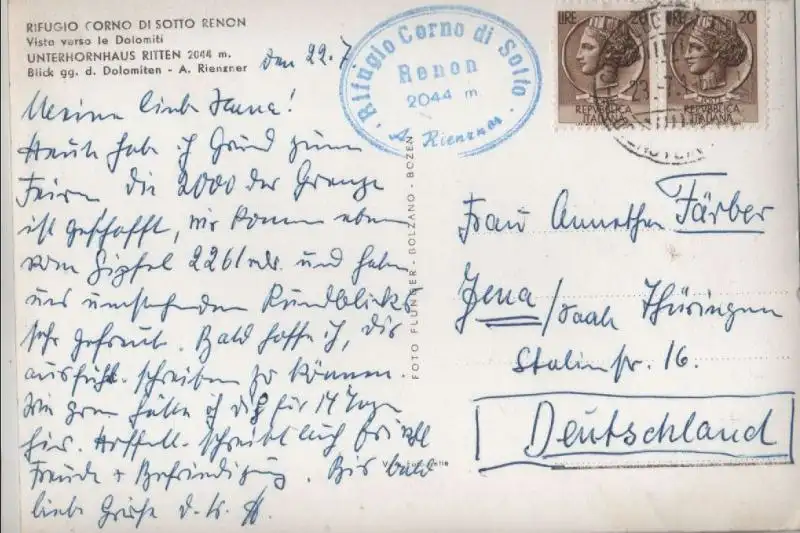 RIFUGIO CORNO DI SOTTO RENON
Vista verso le Dolomiti
UNTERHORNHAUS RITTEN 2044 m.
Blick gg. d. Dolomiten - A. Rienzner
den 22.7
Rifugio Corno di Sotto
Renon
2044 m
A. Rienzner
LIRE 20
LIRE 20
REPVBBLICA
ITALIANA
REPVBBLICA
ITALIANA
Meine liebe
Heute hab ich Grund zum
Feiern die 2000 der Grenze
ist geschafft, wir kommen eben
vom Gipfel 2261 mtr. und haben
uns umstehenden Rundblicks
sehr gefreut. Bald hoffe ich, dir
ausführl. schreiben zu können.
Wie gern hätte ich dich für 14 Tage
hier. Hoffentl. schreibt euch
Freude + Befriedigung. Bis bald
liebe Grüße
FOTO FLUNGER - BOLZANO - BOZEN
Frau Färber
Jena/Saale Thüringen
Stalinstr. 16.
Deutschland